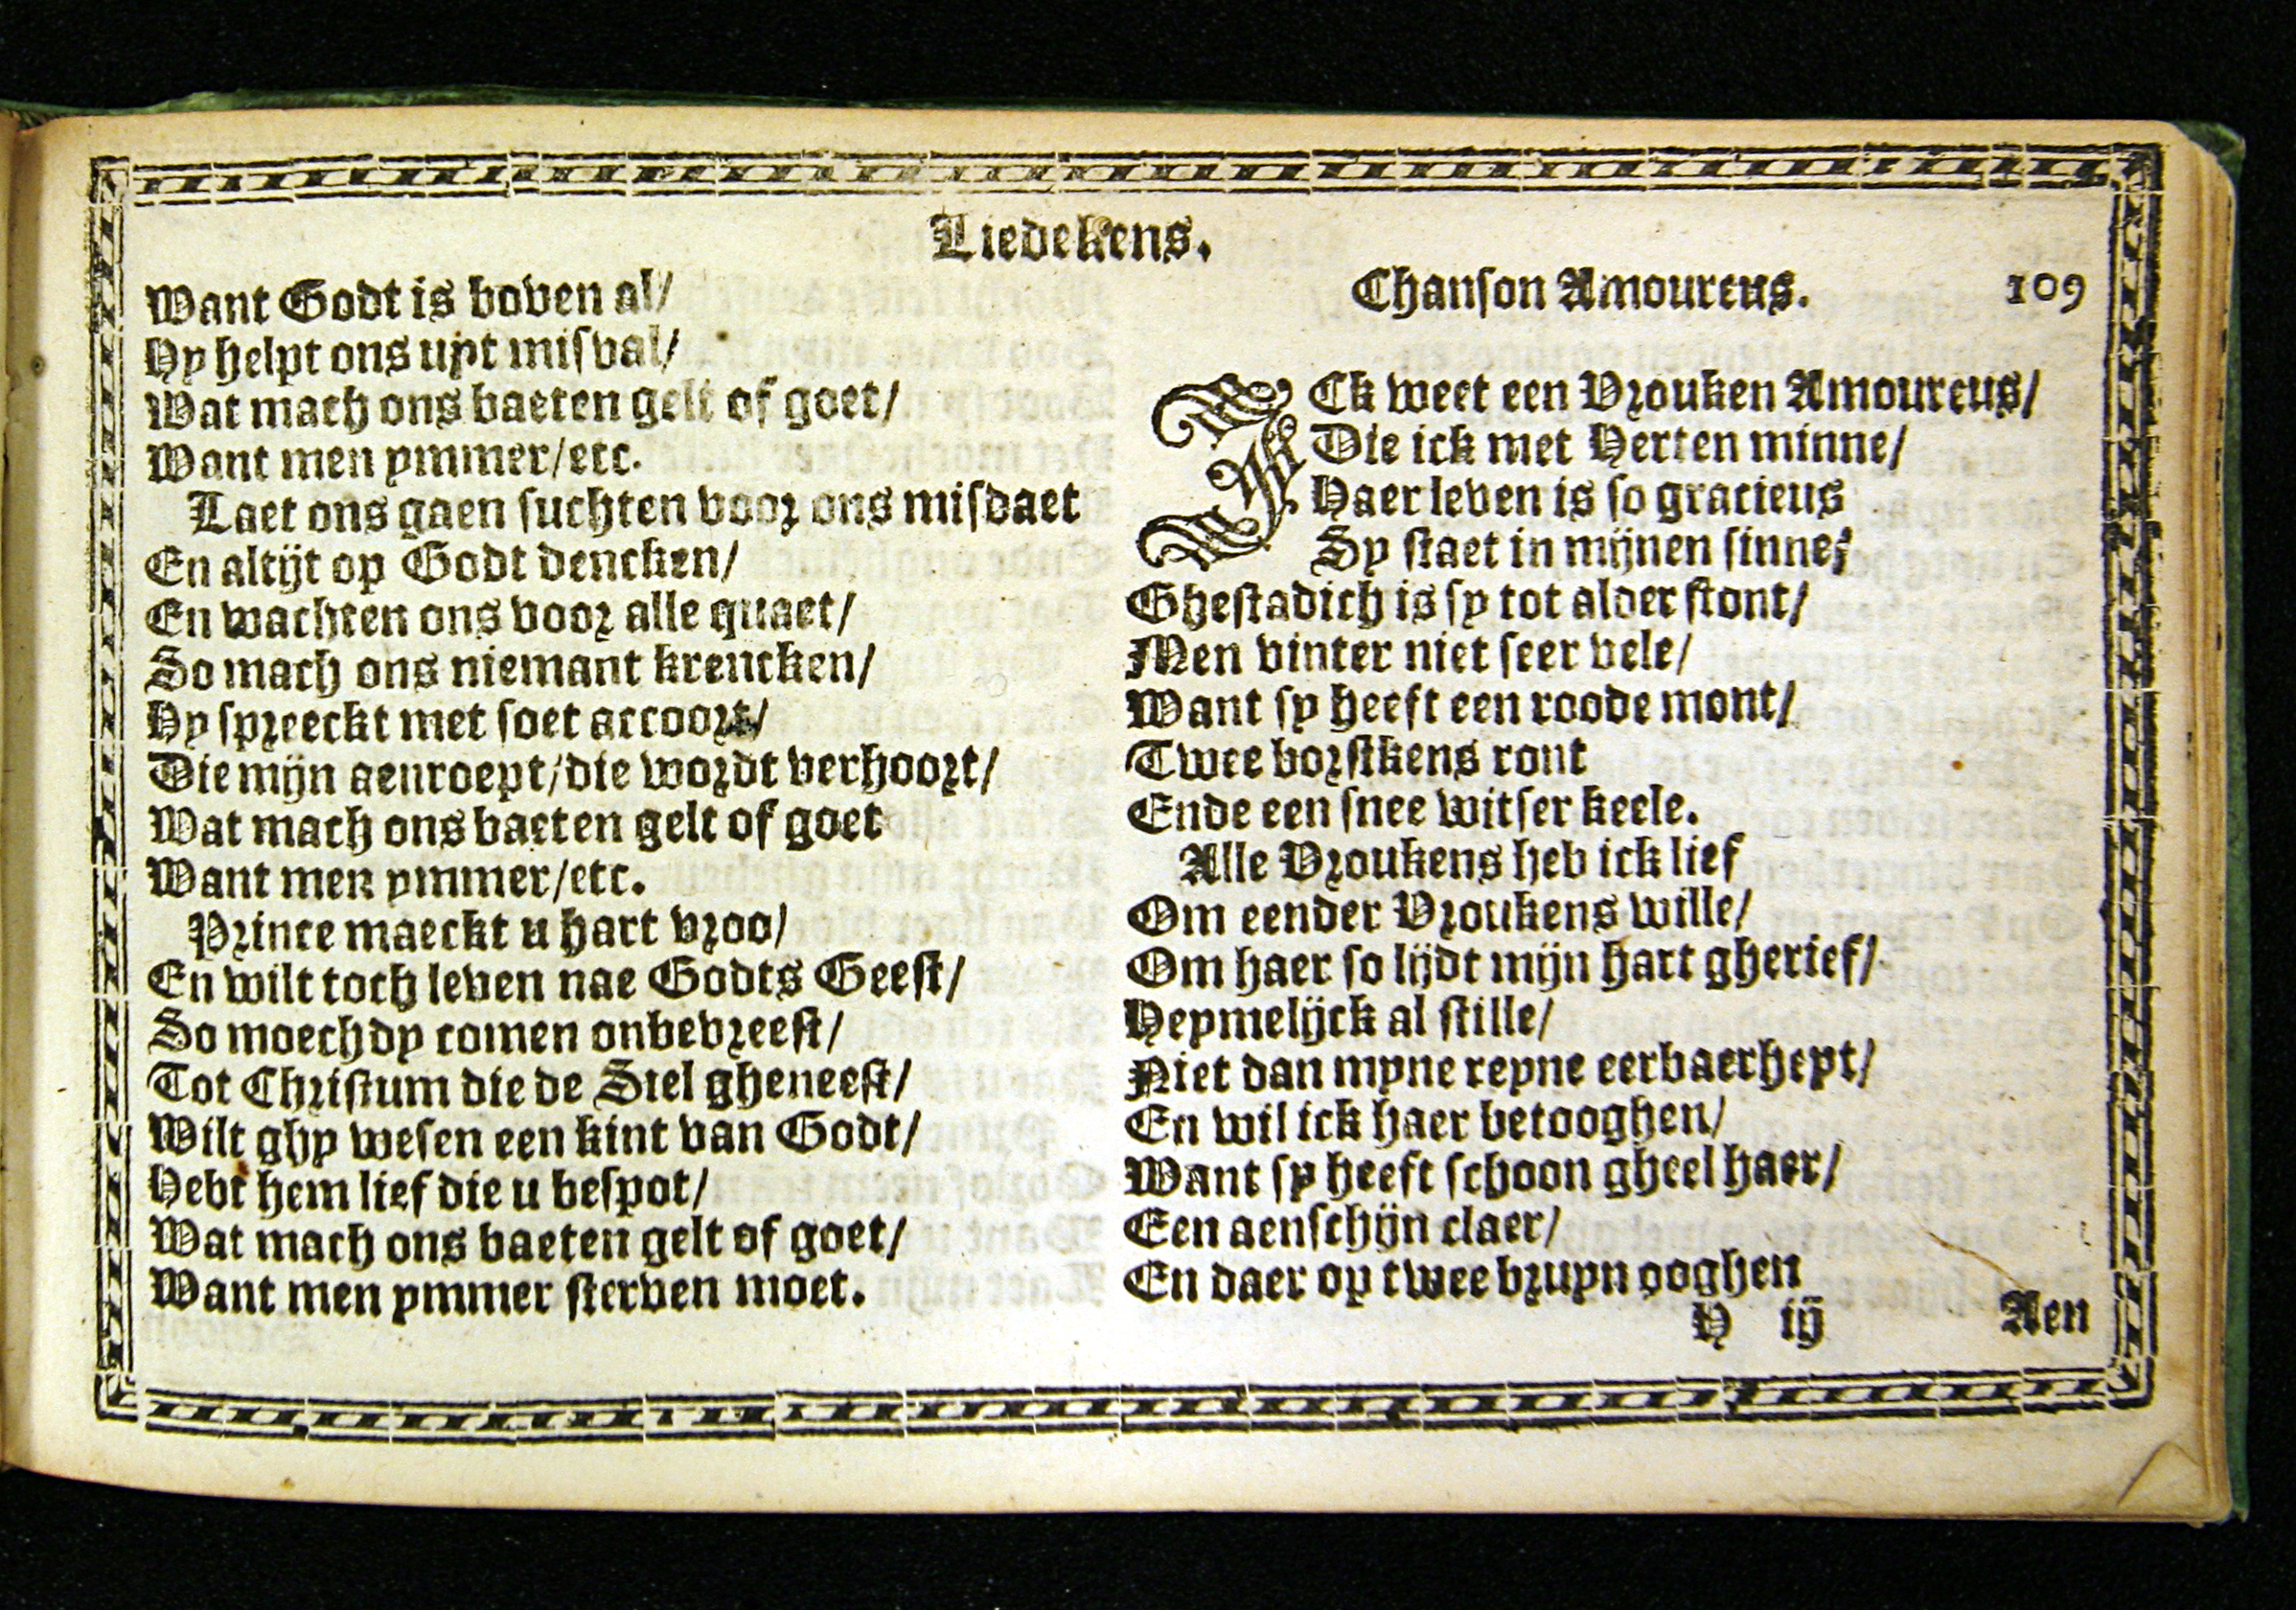 Liedekens.
Want Godt is boven al/
Hy helpt ons uyt misval/
Wat mach ons baeten gelt of goet/
Want men ymmer/etc.
Laet ons gaen suchten voor ons misdaet
En altijt op Godt dencken/
En wachten ons voor alle quaet/
So mach ons niemant krencken/
Hy spreeckt met soet accoort/
Die mijn aenroept/die wordt verhoort/
Wat mach ons baeten gelt of goet
Want men ymmer/etc.
Prince maeckt u hart vroo/
En wilt toch leven nae Godts Geest/
So moechdy comen onbevreest/
Tot Christum die de Siel gheneest/
Wilt ghy wesen een kint van Godt/
Hebt hem lief die u bespot/
Wat mach ons baeten gelt of goet/
Want men ymmer sterven moet.
Chanson Amoureus. 109
ICk weet een Vrouken Amoureus/
Die ick met Herten minne/
Haer leven is so gracieus
Sy staet in mijnen sinne;
Ghestadich is sy tot alder stont/
Men vinter niet seer vele/
Want sy heeft een roode mont/
Twee borstkens ront
Ende een snee witser keele.
Alle Vroukens heb ick lief
Om eender Vroukens wille/
Om haer so lijdt mijn hart gherief/
Heymelijck al stille/
Niet dan myne reyne eerbaerheyt/
En wil ick haer betooghen/
Want sy heeft schoon gheel haer/
Een aenschijn claer/
En daer op twee bruyn ooghen
H iij Aen